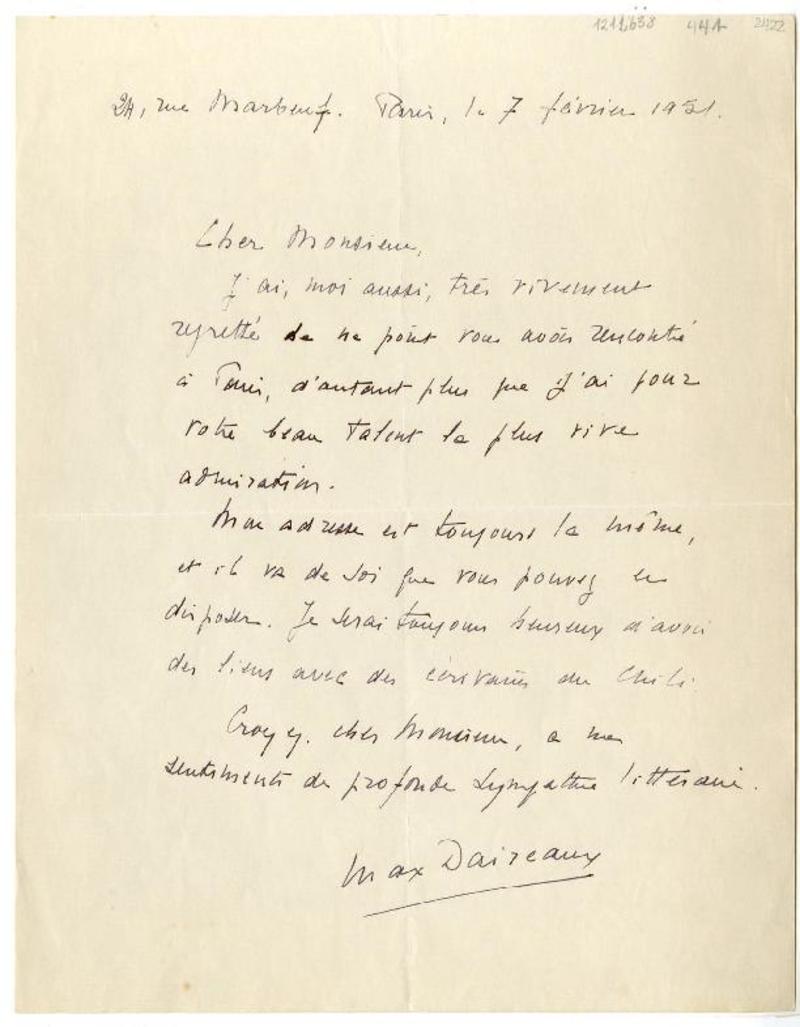 1212638 441 2422
24, rue Marbeuf. Paris, le 7 février 1951.
Cher Monsieur,
J'ai, moi aussi, très vivement
regretté de ne point vous avoir rencontré
à Paris, d'autant plus que j'ai pour
votre beau talent la plus vive
admiration.
Mon adresse est toujours la même,
et il va de soi que vous pouvez en
disposer. Je serai toujours heureux d'avoir
des liens avec des écrivains du Chili.
Croyez, cher Monsieur, à mes
sentiments de profonde sympathie littéraire.
Max Daireaux